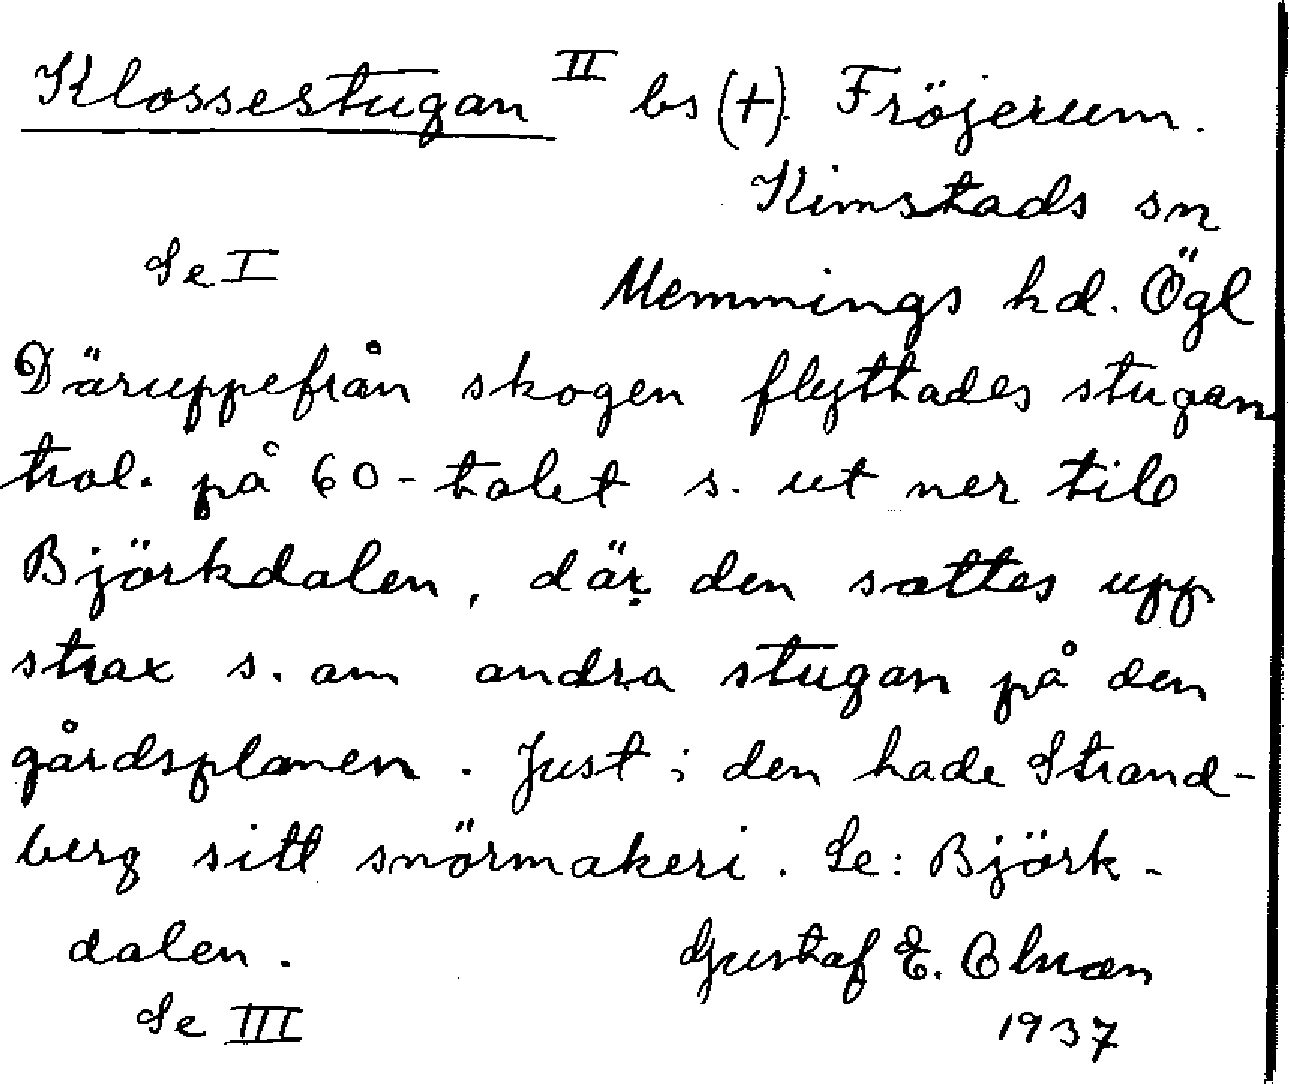 Klossestugan II bs (+). Fröjerum.
Kimstads sn
Se I Memmings hd. Ögl
Däruppefrån skogen flyttades stugan
trol. på 60-talet s. ut ner till
Björkdalen, där den sattes upp
strax s. om andra stugan på den
gårdsplanen. Just i den hade Strand-
berg sitt snörmakeri. Se: Björk-
dalen. Gustaf E.
Se III 1937